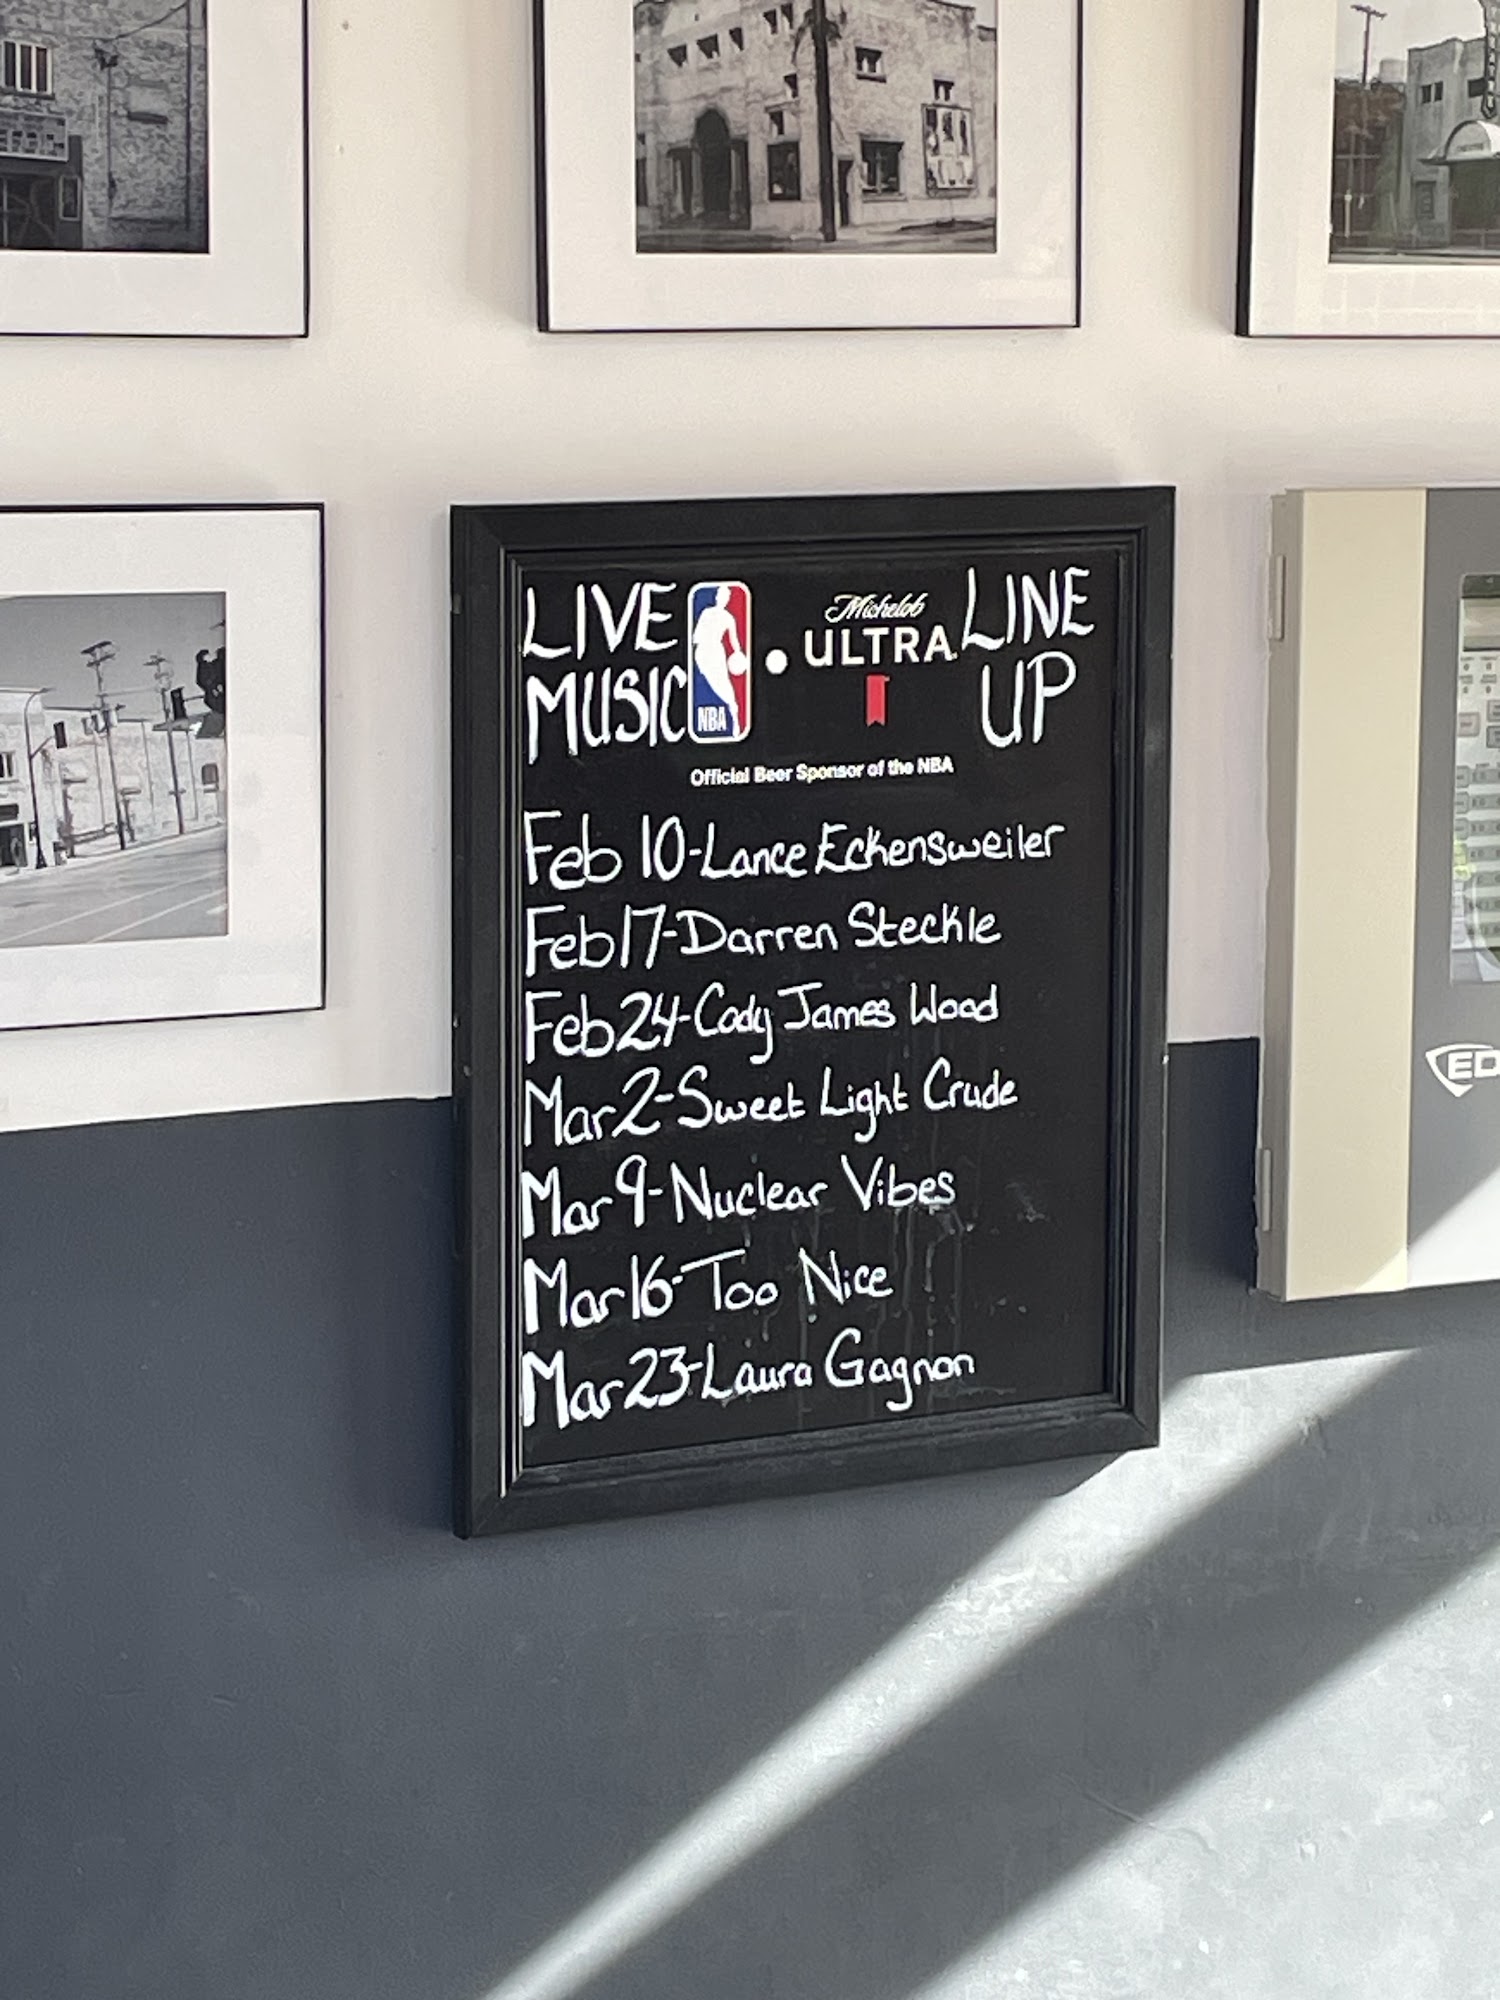 LIVE MUSIC
NBA
Michelob
ULTRA
LINE UP
Official Beer Sponsor of the NBA
Feb 10-Lance Eckensweiler
Feb 17-Darren Steckle
Feb 24-Cody James Wood
Mar 2-Sweet Light Crude
Mar 9-Nuclear Vibes
Mar 16-Too Nice
Mar 23-Laura Gagnon
ED